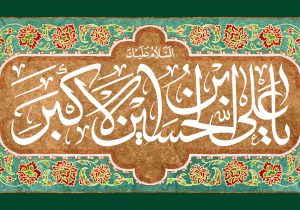 السَّلامُ عَلَیْكَ
یا علی ابن الحسین الاکبر